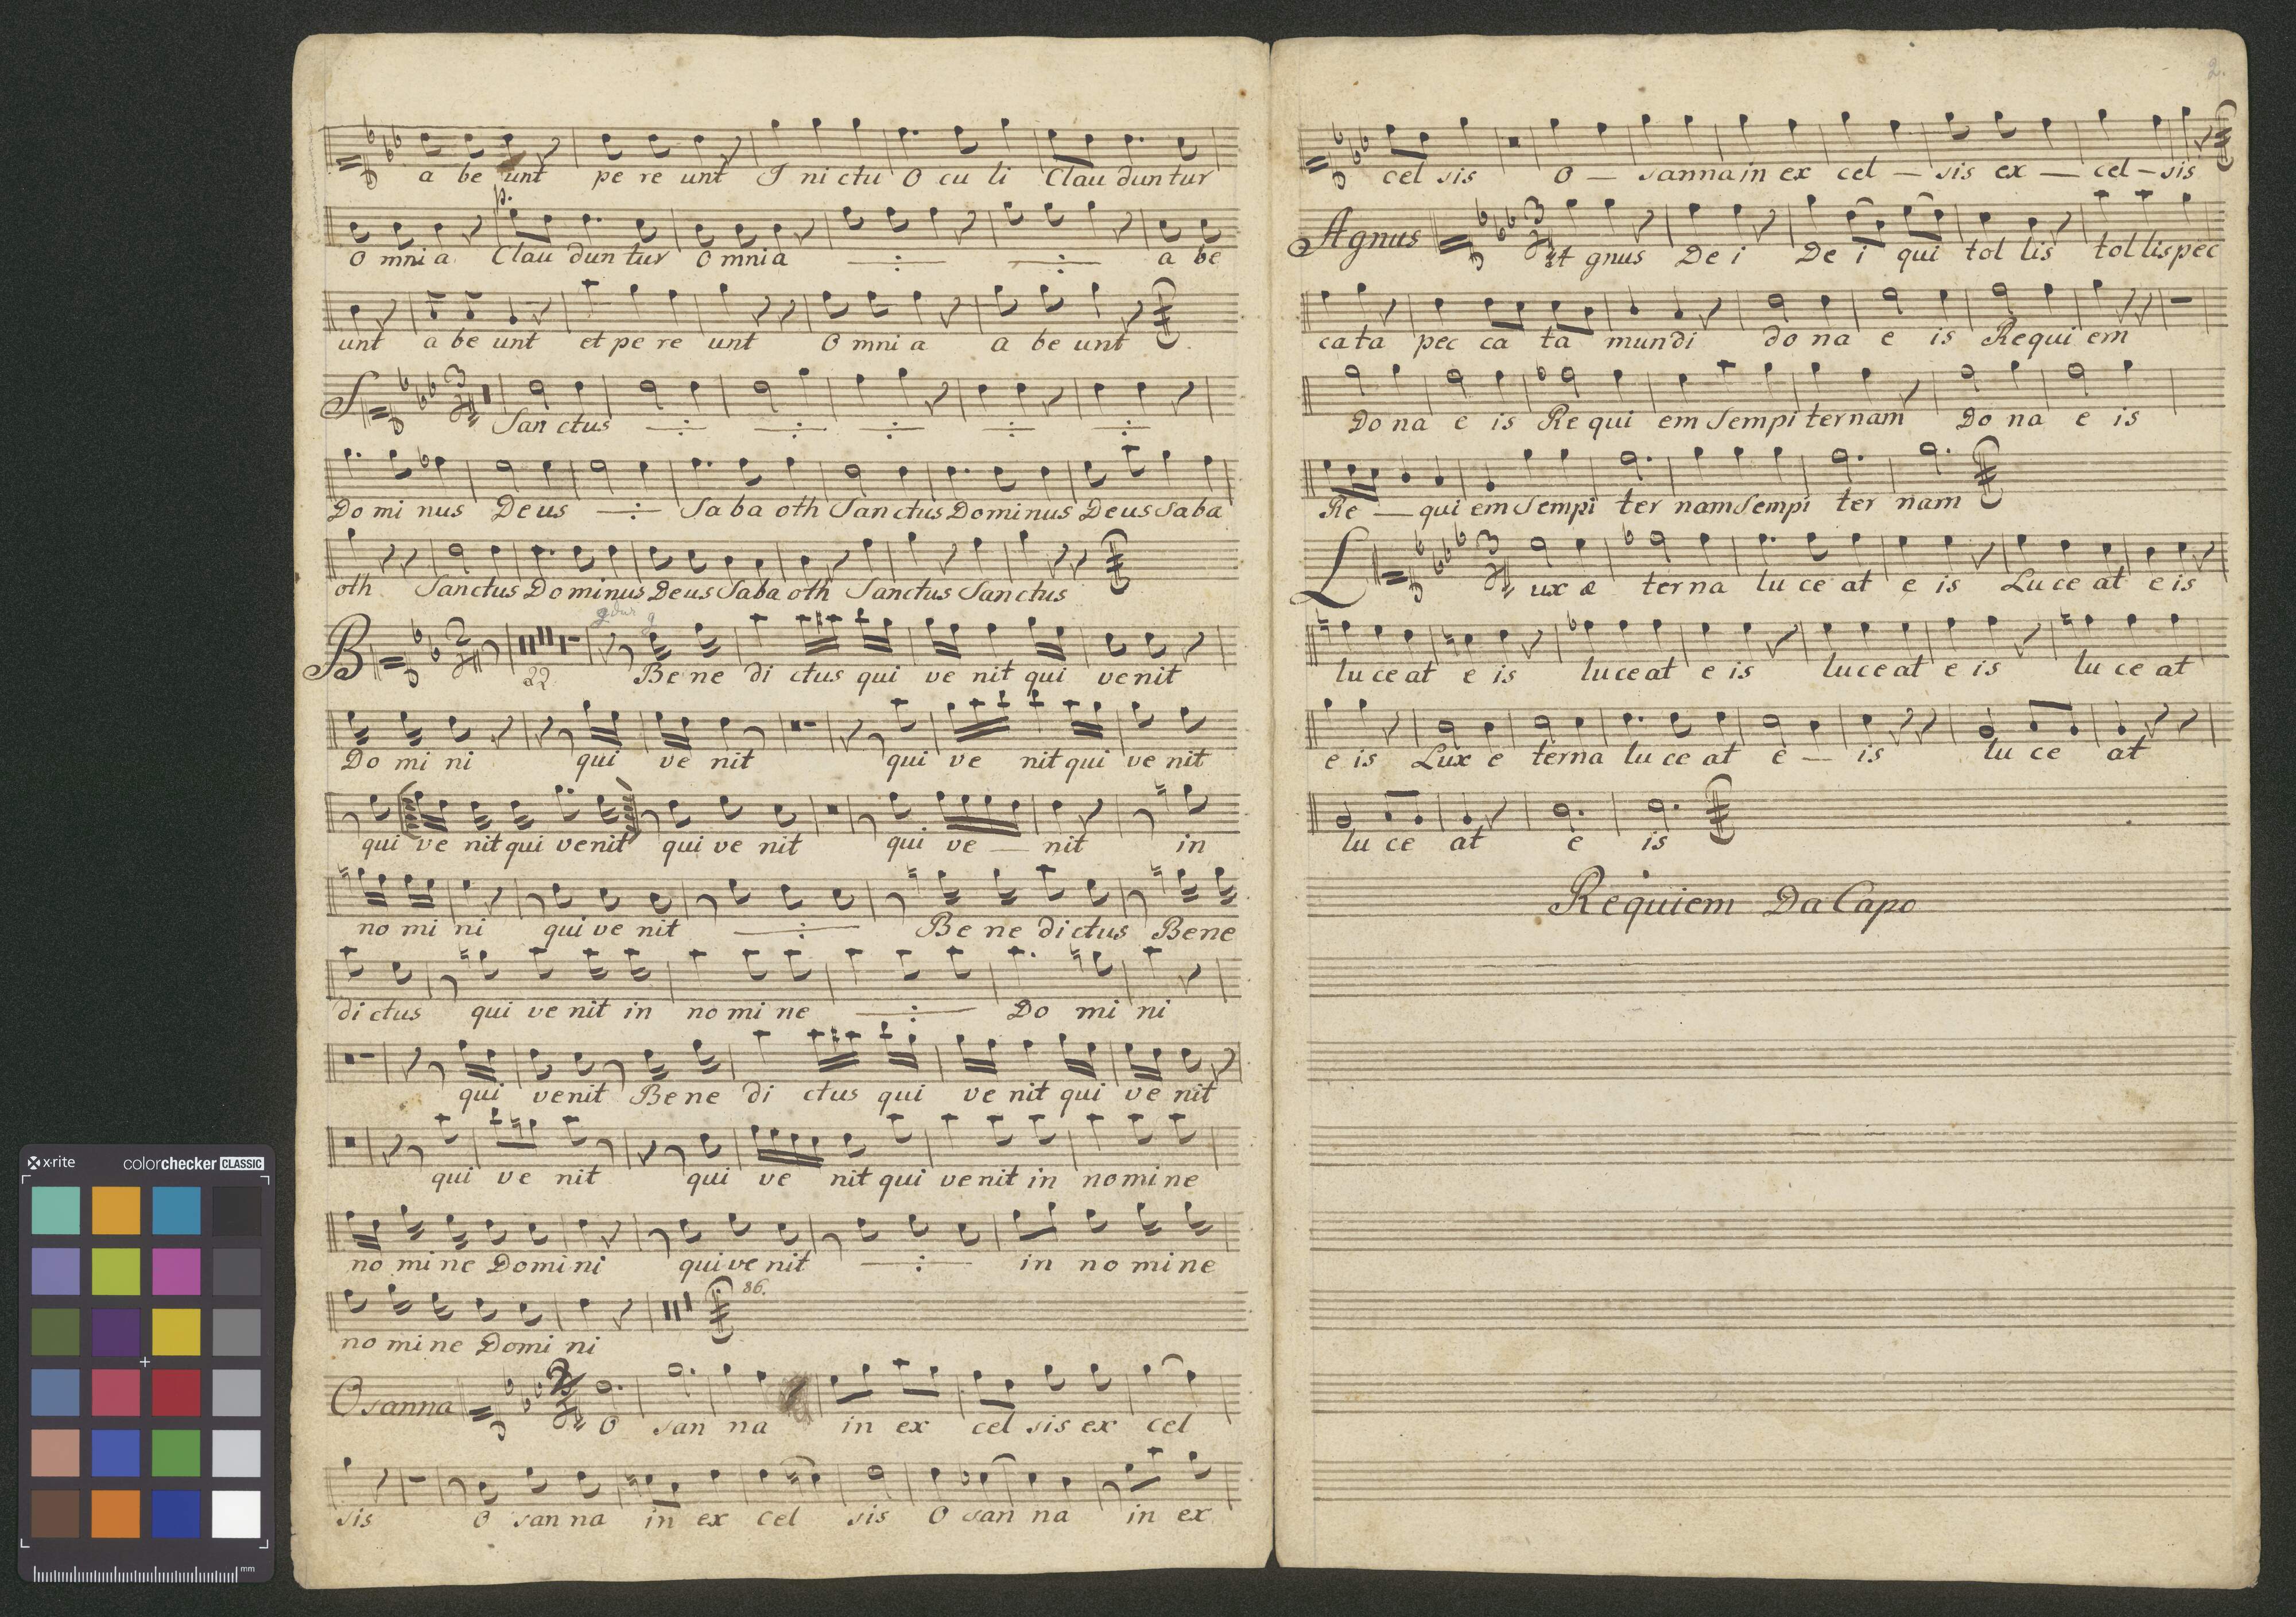 a be unt pe re unt I ni ctu O cu li Clau dun tur
p.
O mni a Clau dun tur O mni a a be
unt a be unt et pe re unt O mni a a be unt
S San ctus
Do mi nus De us Sa ba oth San ctus Do mi nus De us Sa ba
oth San ctus Do mi nus De us Sa ba oth San ctus San ctus
B 22. Be ne di ctus qui ve nit qui ve nit
Do mi ni qui ve nit qui ve nit qui ve nit
qui ve nit qui ve nit qui ve nit qui ve — nit in
no mi ni qui ve nit Be ne di ctus Be ne
di ctus qui ve nit in no mi ne Do mi ni
qui ve nit Be ne di ctus qui ve nit qui ve nit
qui ve nit qui ve nit qui ve nit in no mi ne
no mi ne Do mi ni qui ve nit in no mi ne
86.
no mi ne Do mi ni
Osanna O san na in ex cel sis ex cel
sis O san na in ex cel sis O san na in ex
2.
cel sis O — san na in ex cel — sis ex — cel — sis
Agnus A gnus De i De i qui tol lis tol lis pec
ca ta pec ca ta mun di do na e is Re qui em
Do na e is Re qui em Sem pi ter nam Do na e is
Re — qui em Sem pi ter nam Sem pi ter nam
L ux æ ter na lu ce at e is Lu ce at e is
lu ce at e is lu ce at e is lu ce at e is lu ce at
e is Lux e terna lu ce at e — is lu ce at
lu ce at e is
Requiem Da Capo
x-rite colorchecker CLASSIC
mm